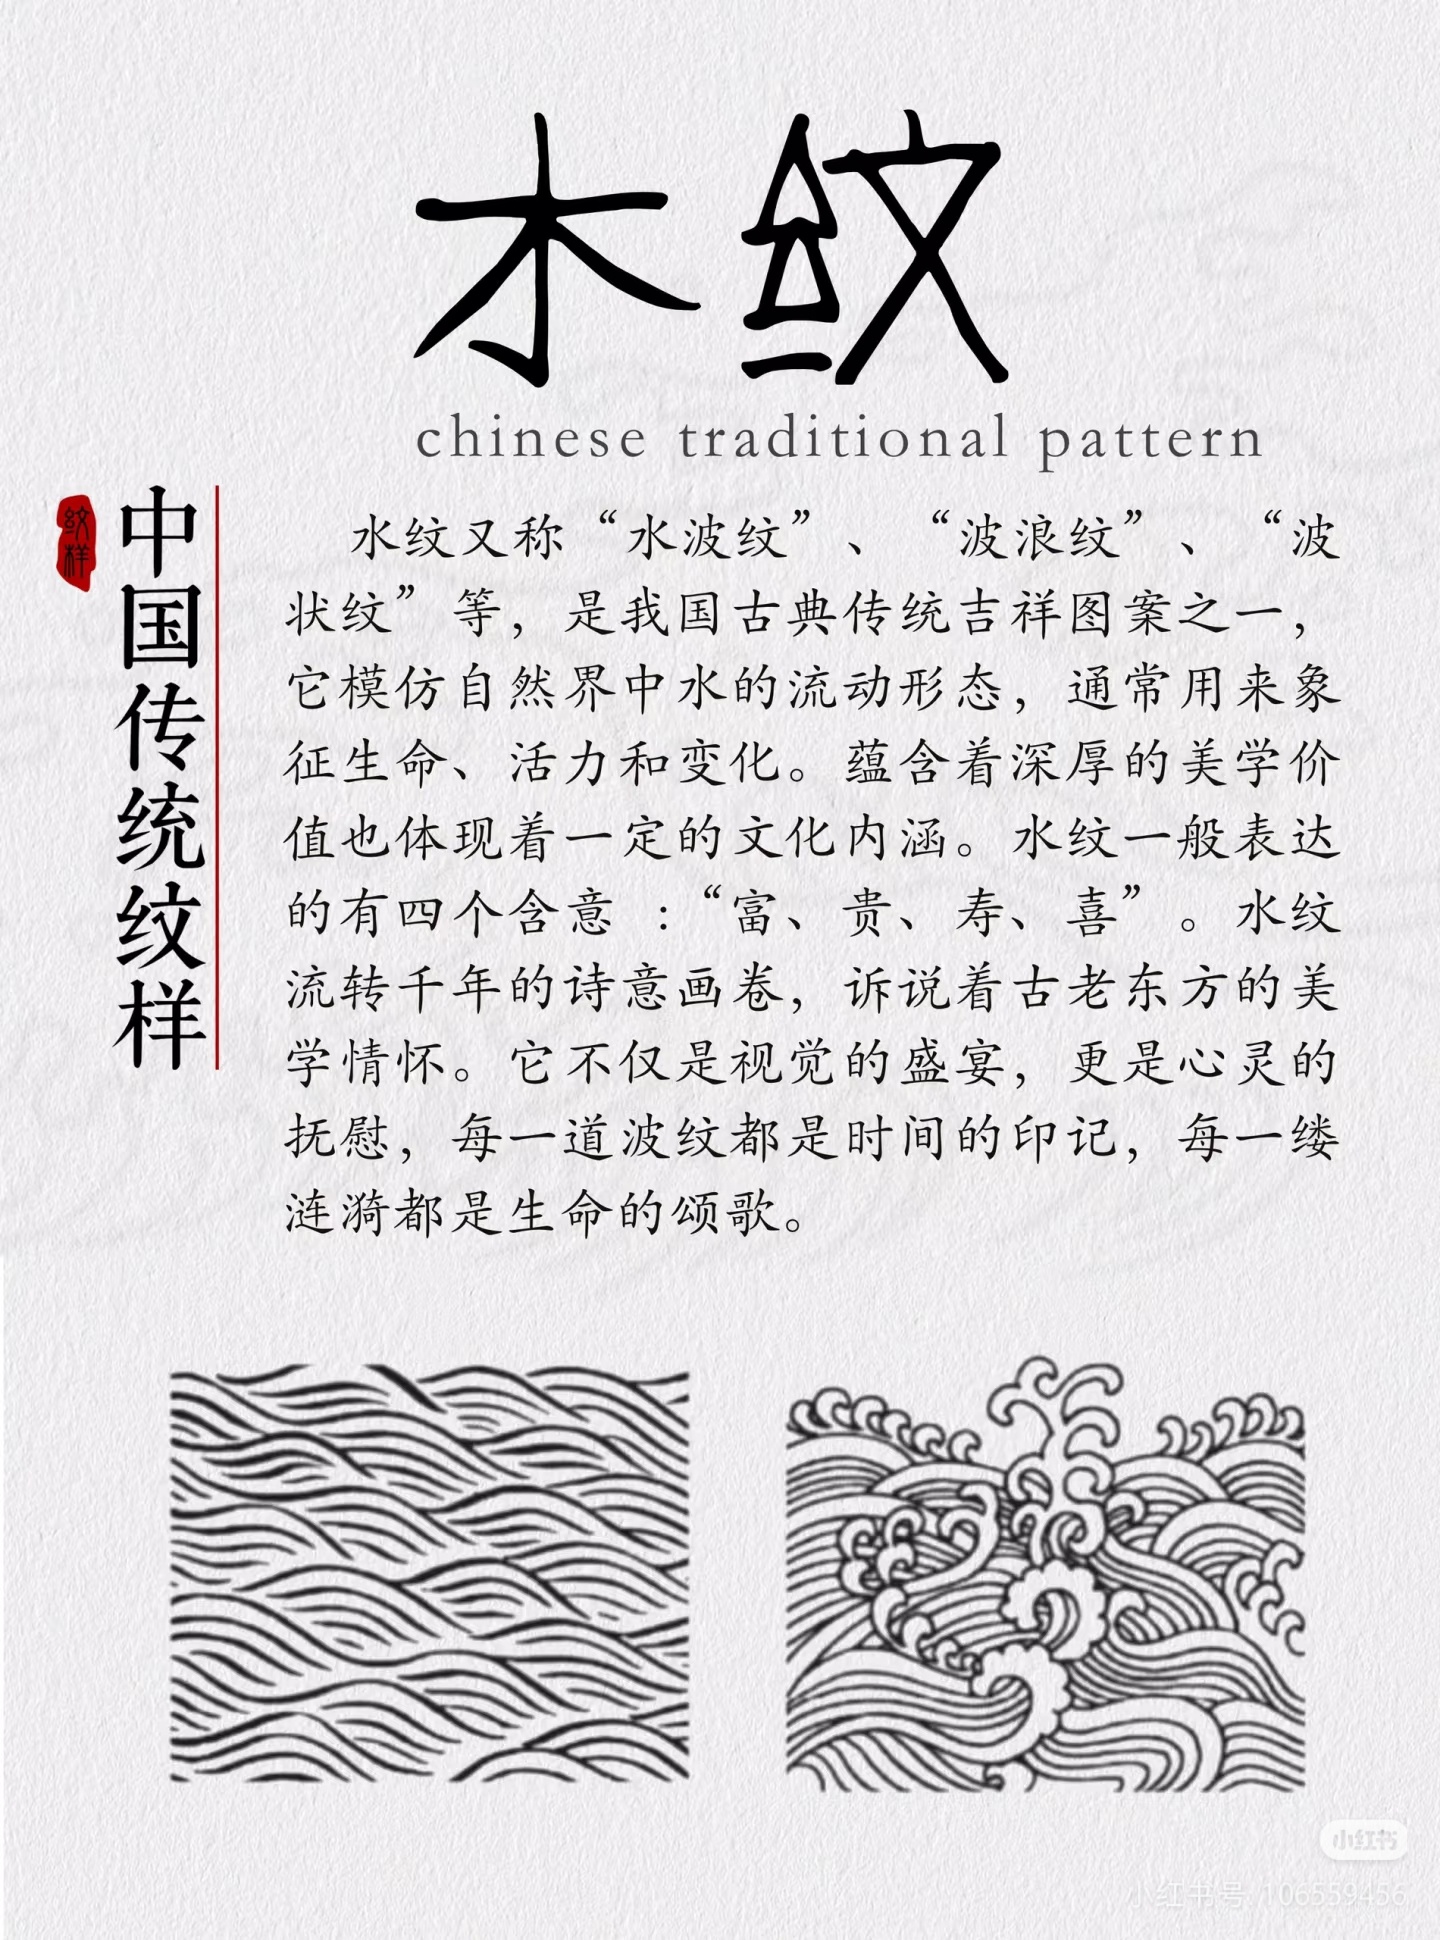 木纹
chinese traditional pattern
纹样
中国传统纹样
水纹又称“水波纹”、“波浪纹”、“波
状纹”等，是我国古典传统吉祥图案之一，
它模仿自然界中水的流动形态，通常用来象
征生命、活力和变化。蕴含着深厚的美学价
值也体现着一定的文化内涵。水纹一般表达
的有四个含意：“富、贵、寿、喜”。水纹
流转千年的诗意画卷，诉说着古老东方的美
学情怀。它不仅是视觉的盛宴，更是心灵的
抚慰，每一道波纹都是时间的印记，每一缕
涟漪都是生命的颂歌。
小红书
小红书号:106559456